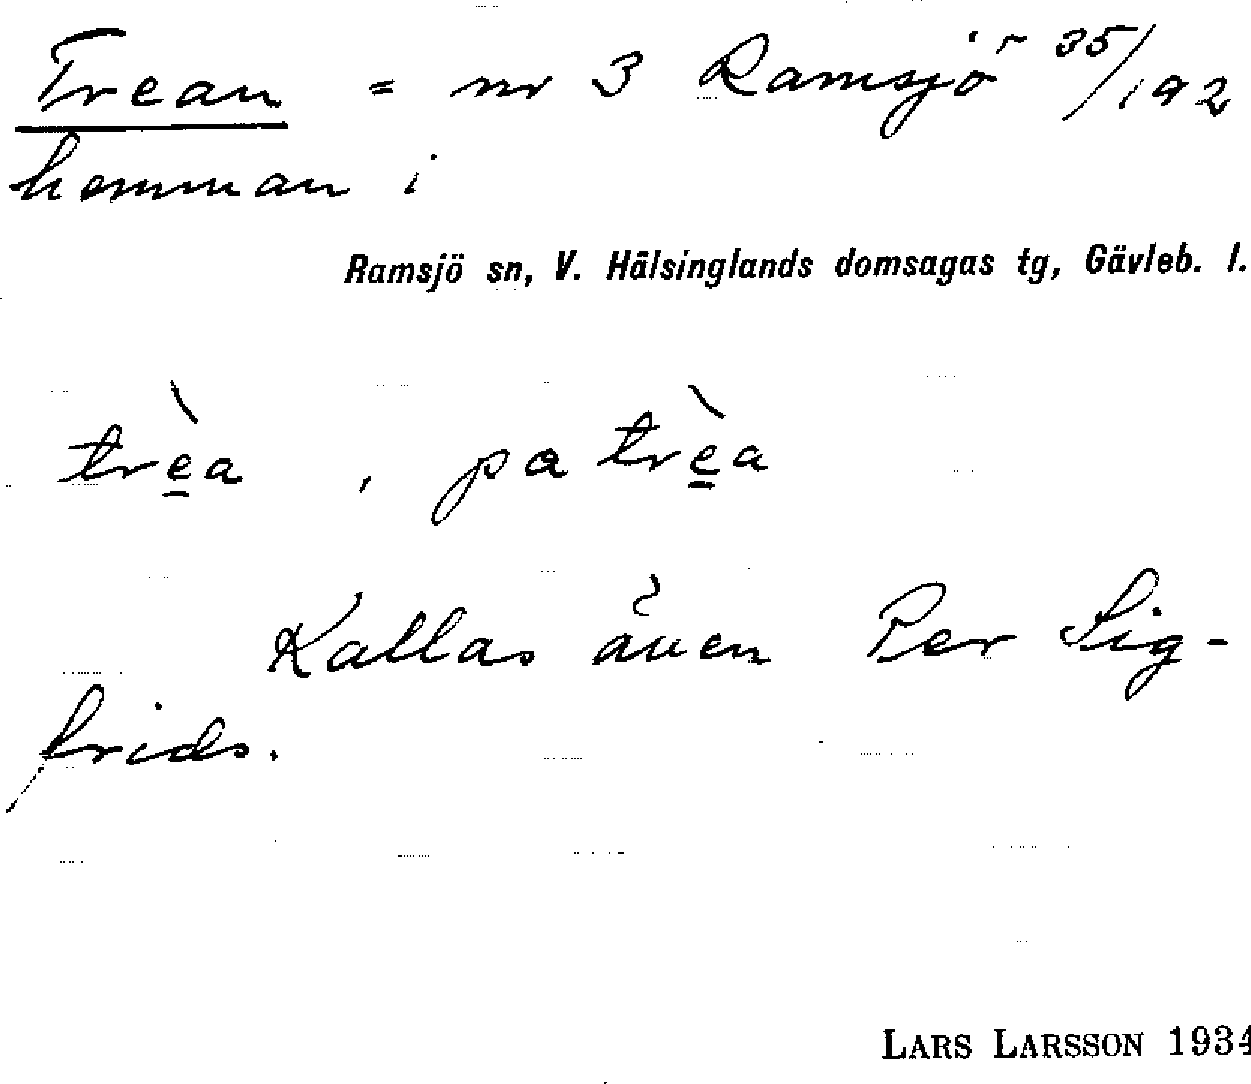 Trean = nr 3 Ramsjö 35/192
hemman i
Ramsjö sn, V. Hälsinglands domsagas tg, Gävleb. l.
trèa, pa trèa
Kallas även Per Sig-
frids.
LARS LARSSON 1934